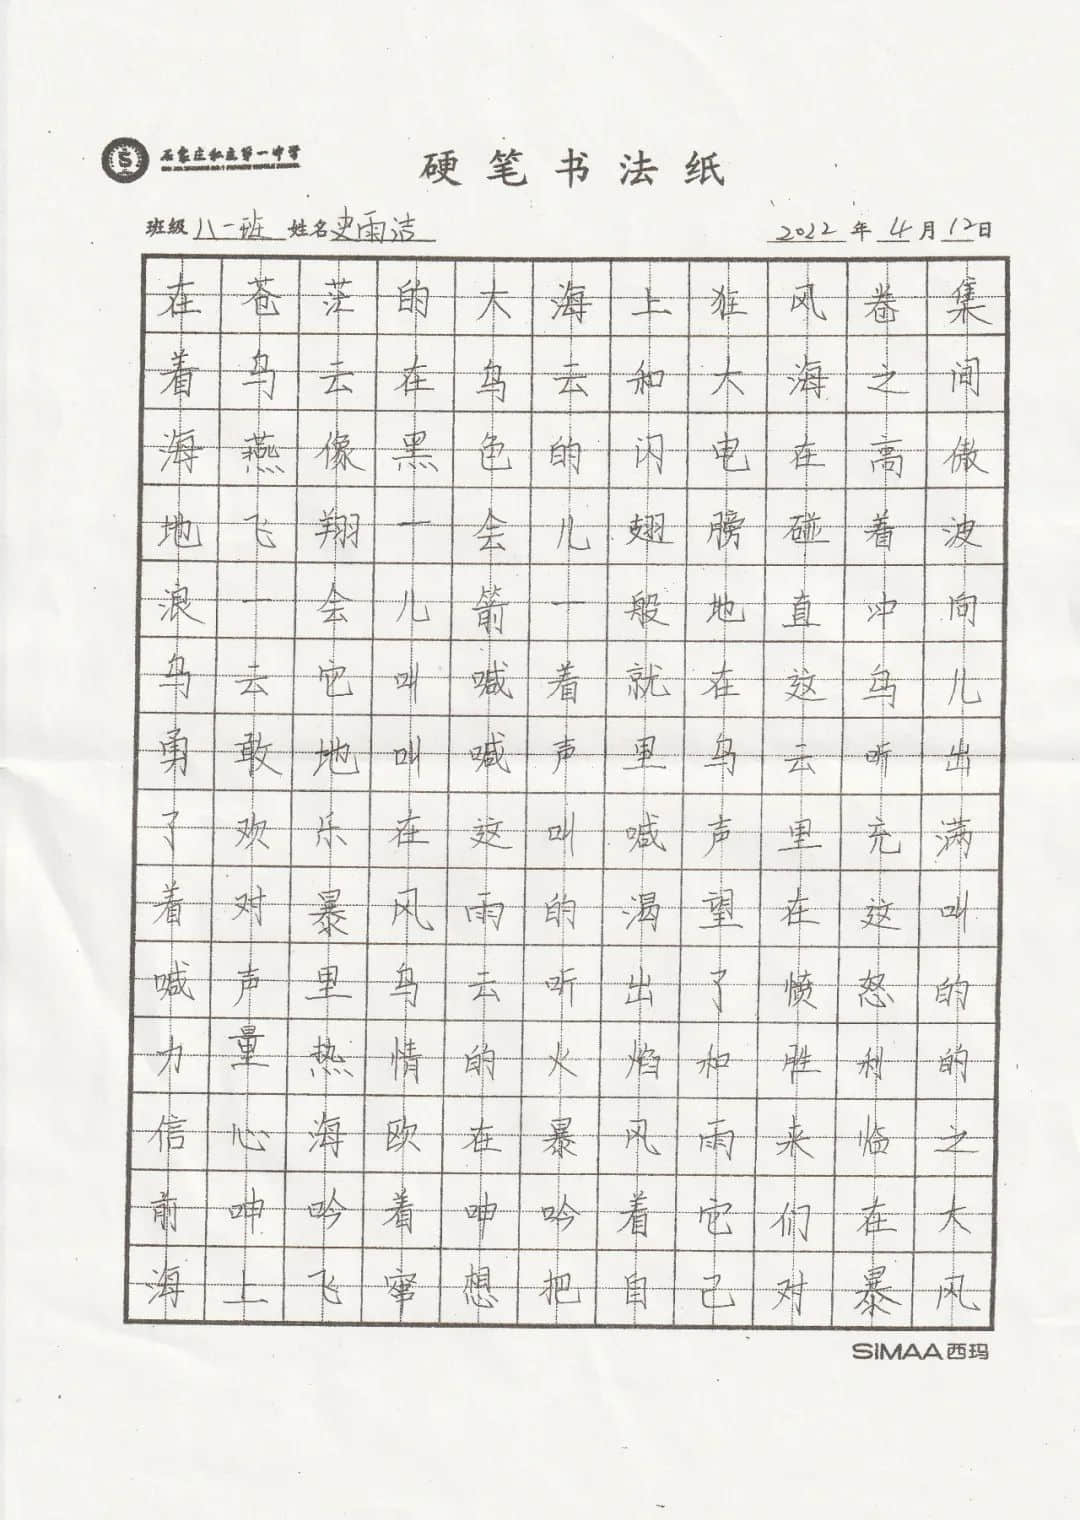 石家庄私立第一中学
硬笔书法纸
班级 八一班 姓名 史雨洁 2022年4月12日
在苍茫的大海上狂风卷集
着乌云在乌云和大海之间
海燕像黑色的闪电在高傲
地飞翔一会儿翅膀碰着波
浪一会儿箭一般地直冲向
乌云它叫喊着就在这鸟儿
勇敢地叫喊声里乌云听出
了欢乐在这叫喊声里充满
着对暴风雨的渴望在这叫
喊声里乌云听出了愤怒的
力量热情的火焰和胜利的
信心海欧在暴风雨来临之
前呻吟着呻吟着它们在大
海上飞窜想把自己对暴风
SIMAA西玛